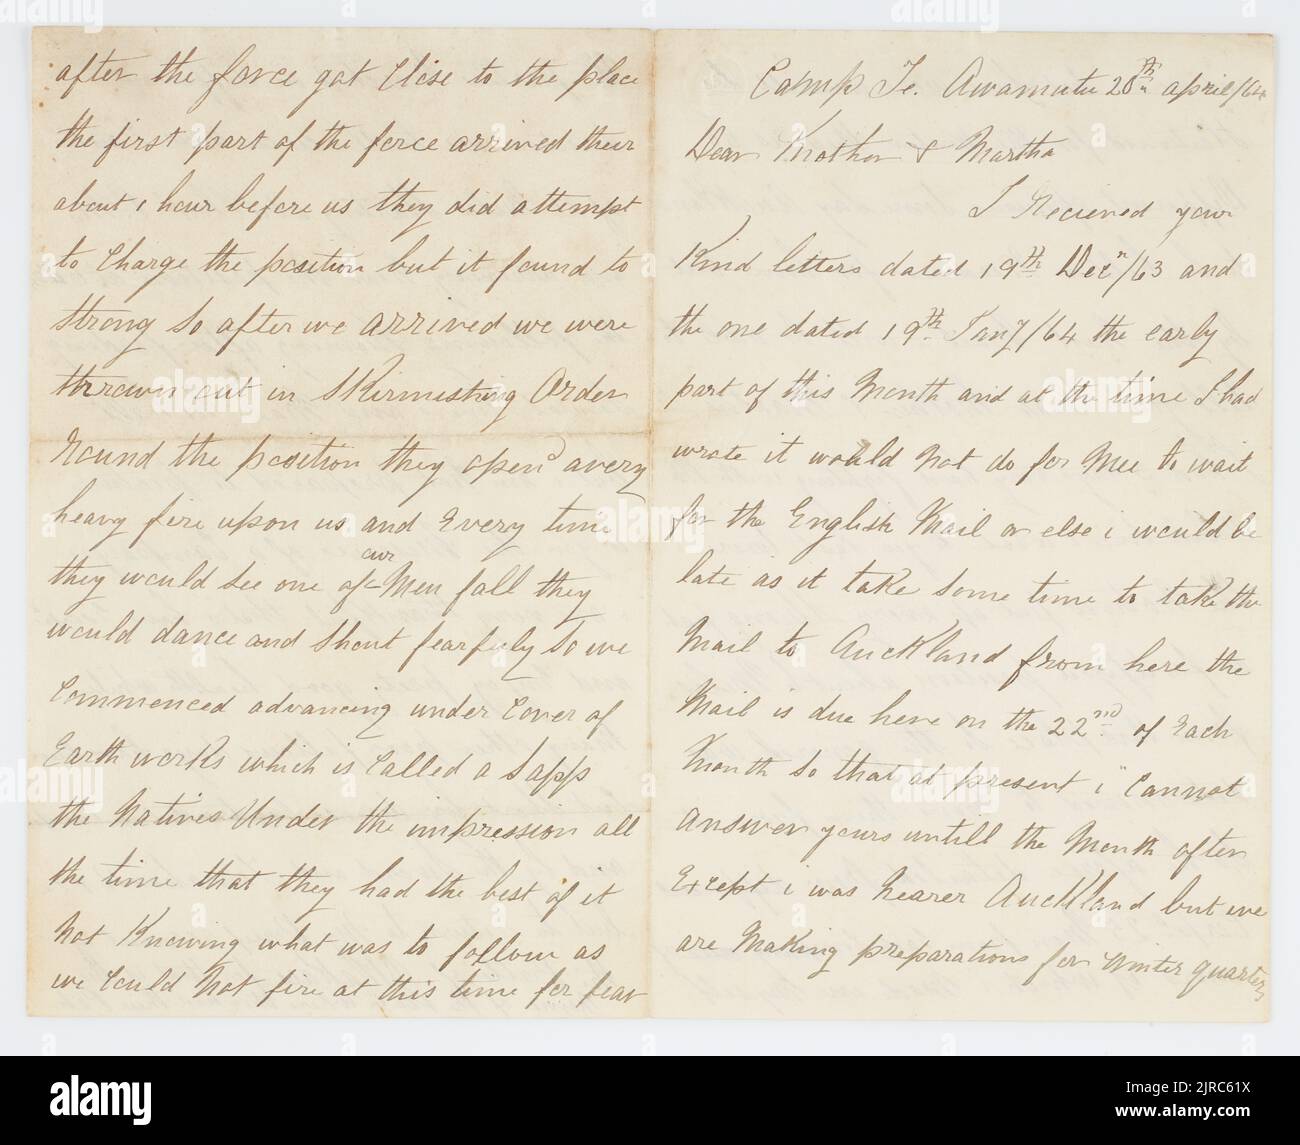 after the force got Close to the place
the first part of the force arrived their
about 1 hour before us they did attempt
to Charge the position but it found to
strong so after we arrived we were
thrown out in Skirmishing Order
round the position they open'd avery
heavy fire upon us and Every time
they would see one of our Men fall they
would dance and Shout fearfuly So we
Commenced advancing under Cover of
Earth works which is Called a Sapp
the Natives Under the impression all
the time that they had the best of it
not Knowing what was to follow as
we Could Not fire at this time for fear
Camp Te. Awamutu 28th april/64
Dear Brother & Martha
I Recieved your
Kind letters dated 19th Decr/63 and
the one dated 19th Jany/64 the early
part of this Month and at the time I had
wrote it would Not do for Mee to wait
for the English Mail or else i would be
late as it take Some time to take the
Mail to Auckland from here the
Mail is due here on the 22nd of Each
Month So that at present i Cannot
answer yours untill the Month after
Except i was Nearer Auckland but we
are Making preparations for Winter quarters
alamy
Image ID: 2JRC61X
www.alamy.com